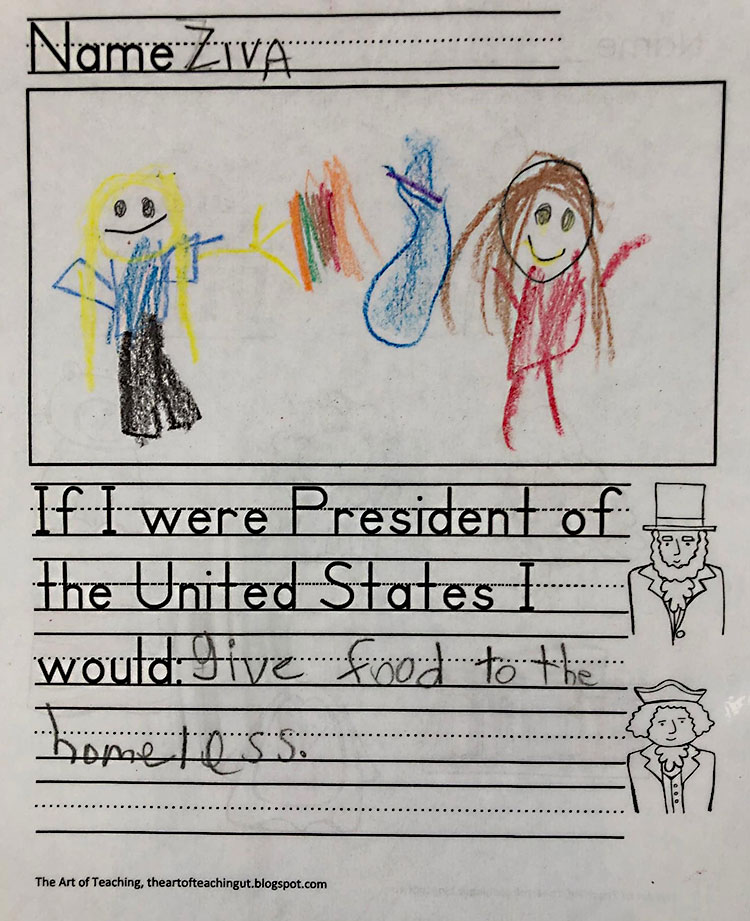 Name ZIVA
If I were President of
the United States I
would: give food to the
homeless.
The Art of Teaching, theartofteachingut.blogspot.com